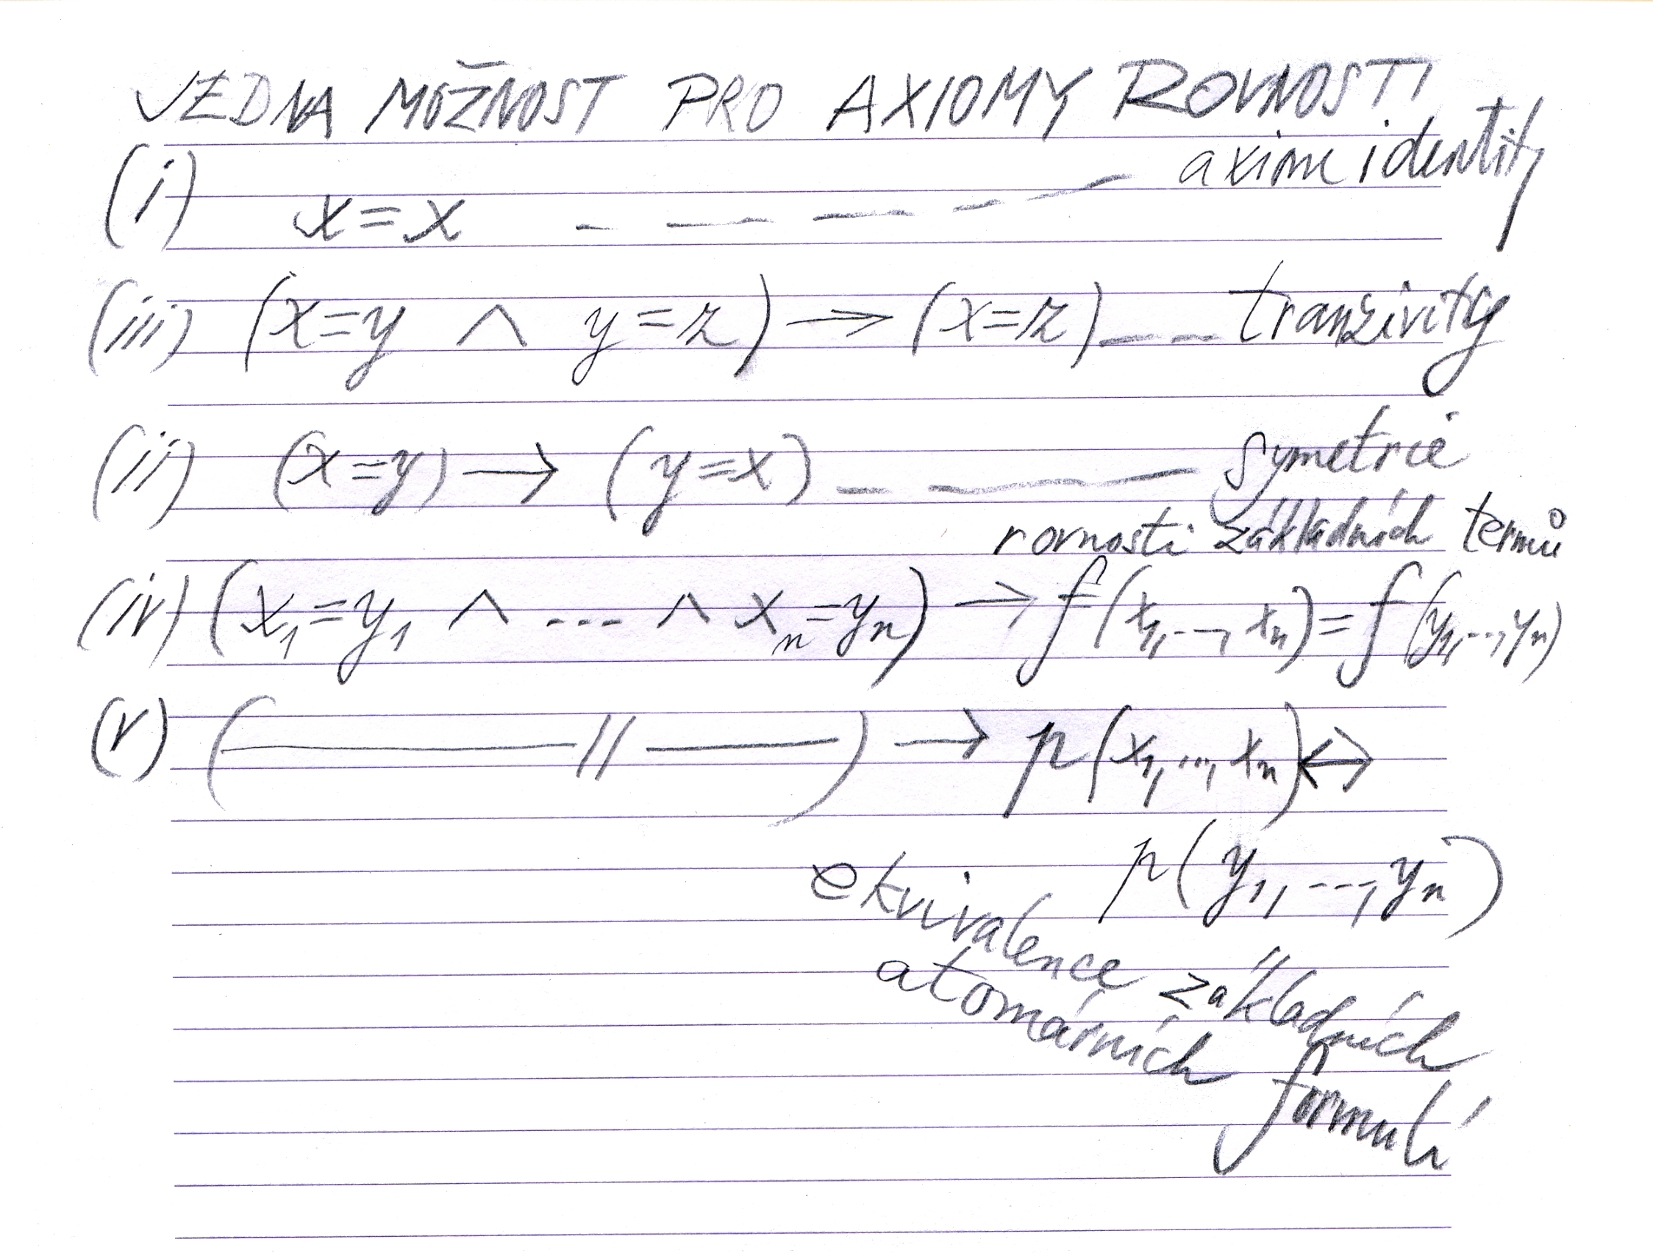 JEDNA MOŽNOST PRO AXIOMY ROVNOSTI
(i) x = x _ _ _ _ _ axiom identity
(iii) (x=y ∧ y=z) → (x=z) _ _ _ tranzivity
(ii) (x=y) → (y=x) _ _ _ symetrie
rovnosti základních termů
(iv) (x₁=y₁ ∧ ... ∧ xₙ=yₙ) → f(x₁,..., xₙ) = f(y₁,..., yₙ)
(v) (——— // ———) → p(x₁,..., xₙ) ↔
p(y₁,..., yₙ)
ekvivalence základních
atomárních formulí